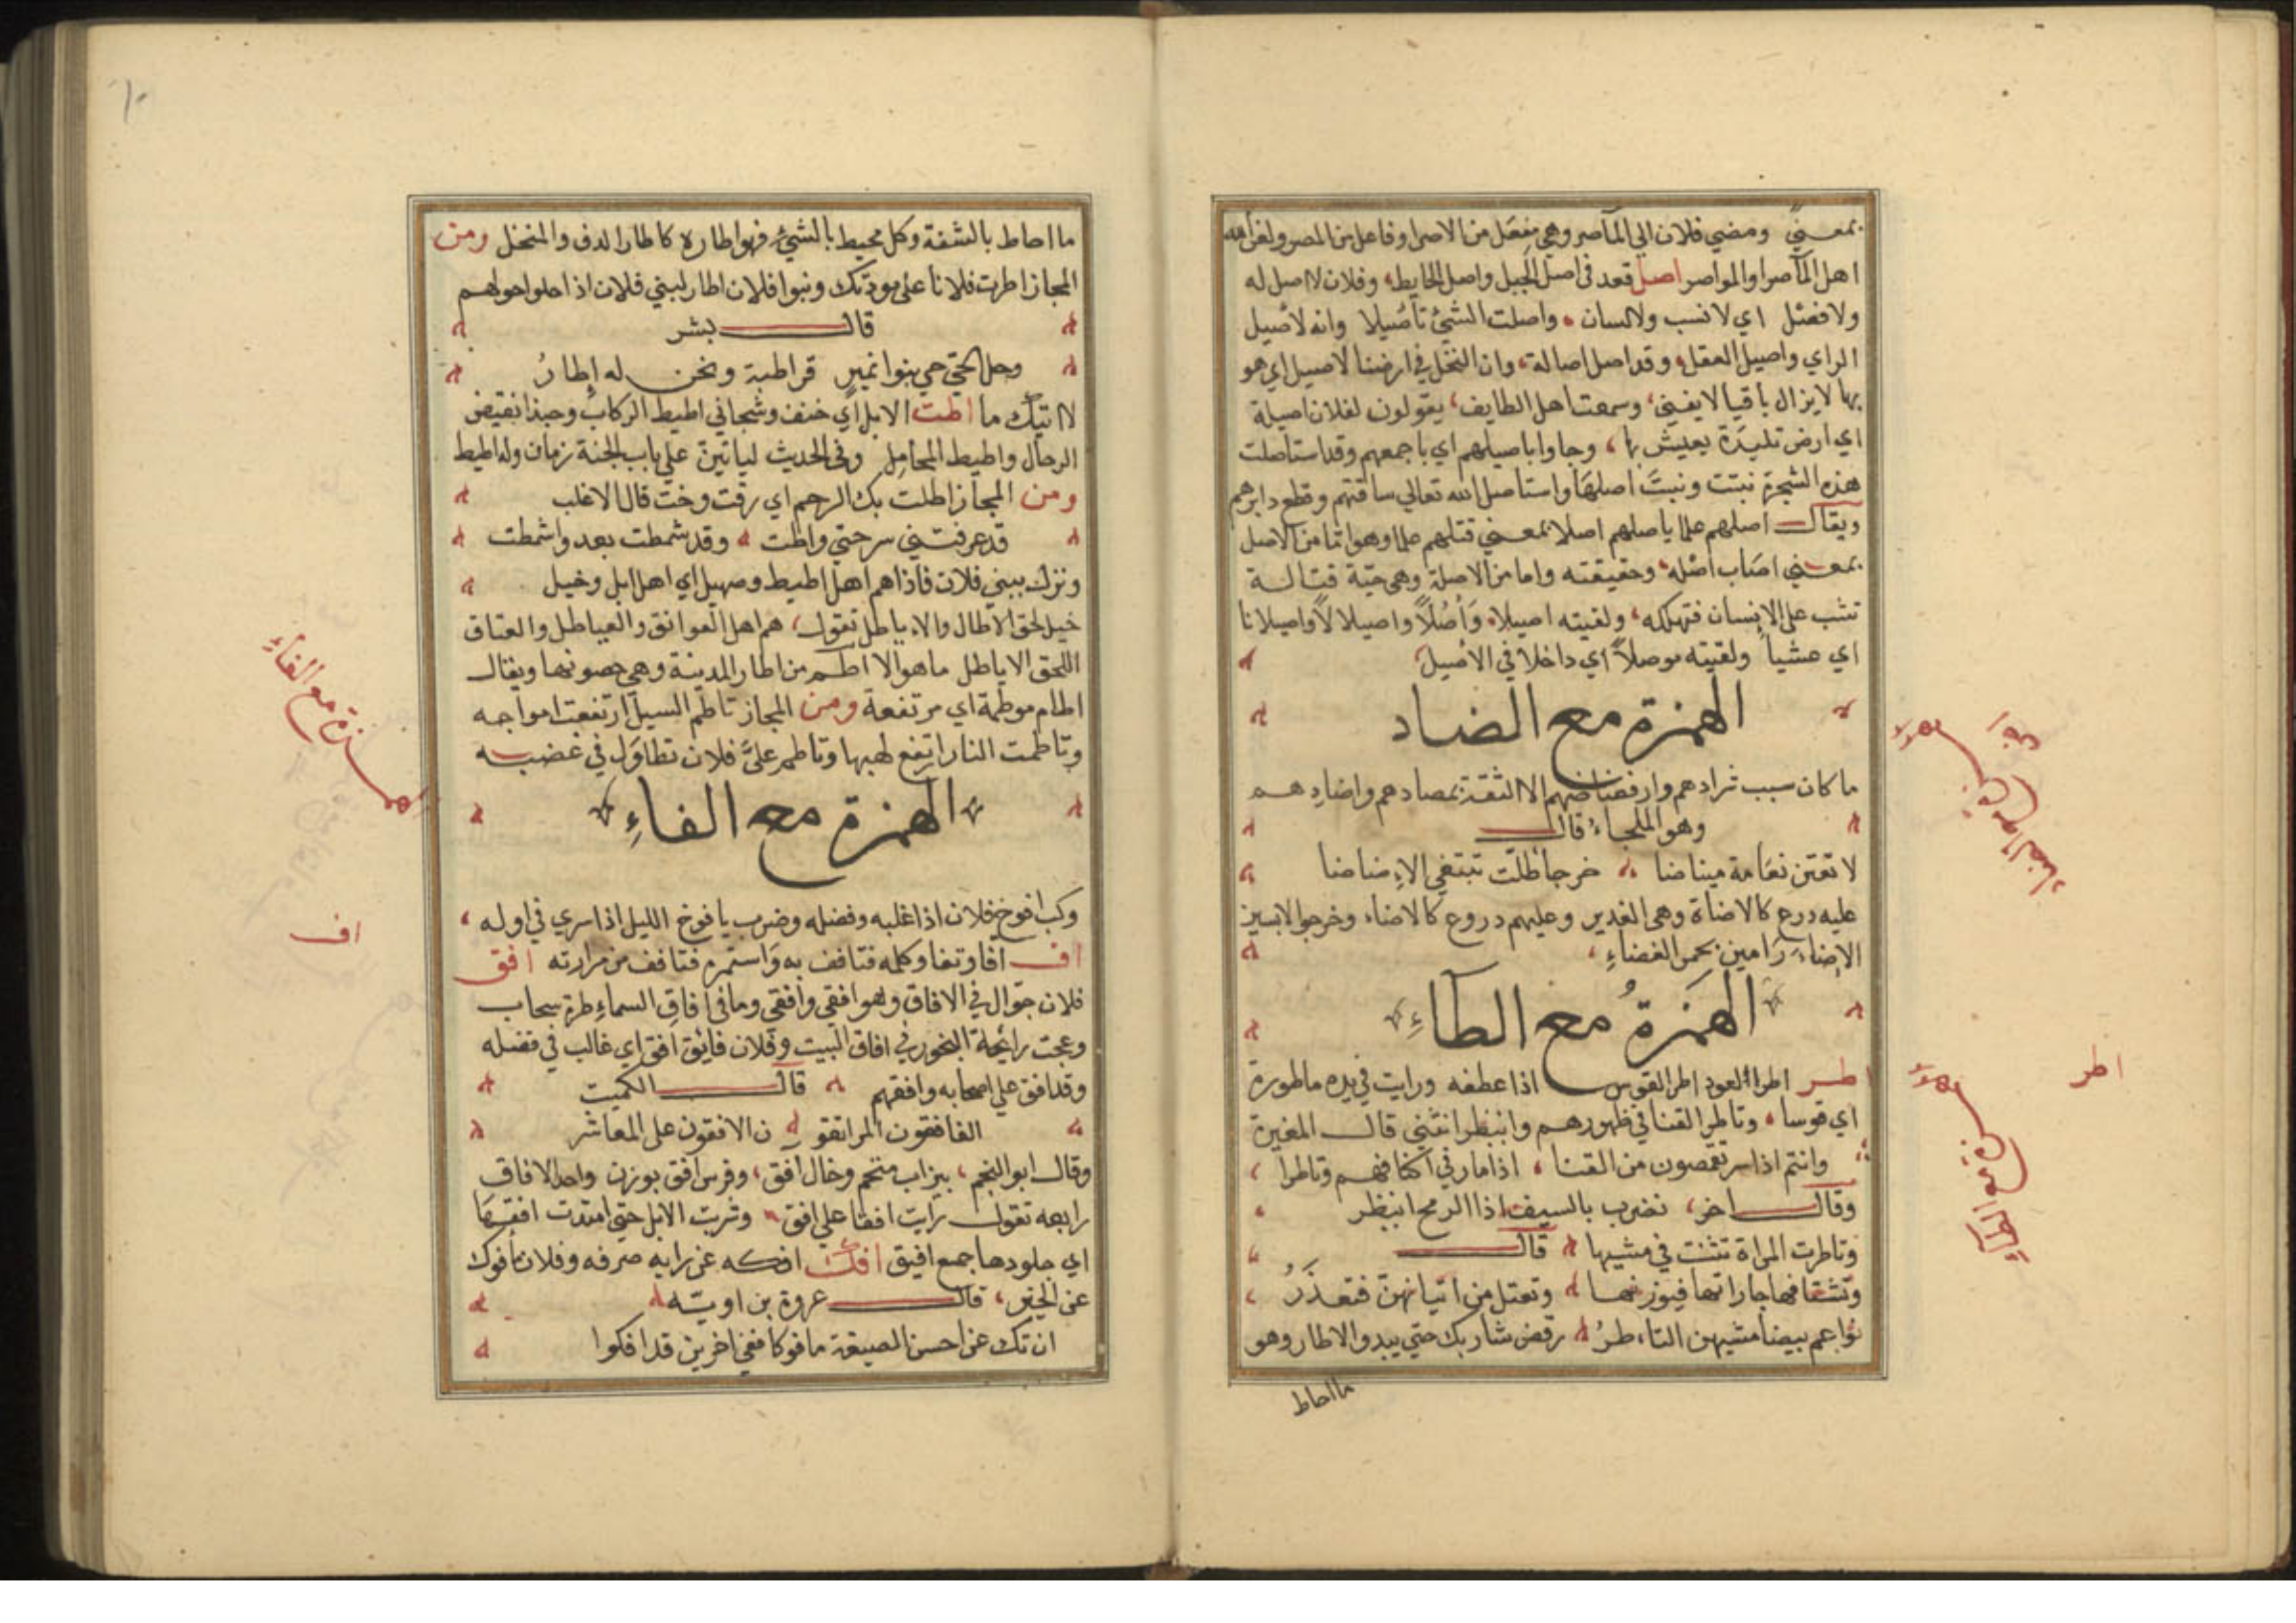 بمعنى ومضي فلان الي المآصر وهي مفعل من الاصر او فاعل من المصر ولغن الله
اهل المآصر والمواصر اصل قعد في اصل الجبل واصل الحايط، وفلان لا اصل له
ولا فصل اي لا نسب ولا لسان واصلت الشئ تاصيلا وانه لاصيل
الراي واصيل العقل وقد اصل اصالة، وان النخل في ارضنا لاصيل اي هو
بها لا يزال باقيا لا يفني، وسمعت اهل الطايف، يقولون لفلان اصيلة
اي ارض تليدة يعيش بها، وجاوا باصيلهم اي باجمعهم وقد استاصلت
هذه الشجرة نبتت ونبت اصلها واستاصل الله تعالي ساقتهم وقطع دابرهم
ويقال اصلهم علما ياصلهم اصلا بمعني قتلهم علما وهو اما من الاصل
بمعني اصاب اصله وحقيقته واما من الاصلة وهي حية قتالة
تثب علي الانسان فتهلكه، ولقيته اصيلا وأصلا واصيلالا واصيلانا
اي عشيا ولقيته موصلا اي داخلا في الاصيل
الهمزة مع الضاد
ما كان سبب شرادهم وارفضاضهم الا الثقة بمصادهم واضادهم
وهو الملجاء قال
لا تعتن نعامة ميناضا خرجا ظلت تبتغي الاضاضا
عليه درع كالاضاة وهي الغدير وعليهم دروع كالاضاء وخرجوا لابسين
الاضاء رامين بجمر الغضاء
الهمزة مع الطاء
اطر اطر العود اطر القوس اذا عطفه ورايت في يده ماطورة
اي قوسا وتاطر القنا في ظهورهم وانبظر انثني قال المغيرة
وانتم اذا سر تقمصون من القنا اذا مار في اكنافهم وتاطرا
وقال اخر، نضرب بالسيف اذا الرمح انبظر
وتاطرت المراة تثنت في مشيها قال
وتشتاقها جاراتها فيزرنها وتعتل من اتيانهن فتعذر
نواعم بيضا مشيهن التاطر رقص شاربك حتي يبدو الاطار وهو
ما احاط
اطر
ما احاط بالشفة وكل محيط بالشئ فهو اطاره كاطار الدف والمنخل ومن
المجاز اطرت فلانا على مودتك وبنوا فلان اطار لبني فلان اذا حلوا حولهم
قال بشر
وحل الحي حي بنوا نمير قراطبة ونحن له إطار
لا اتيك ما اطت الابل اي خنف وشجاني اطيط الركاب وحبذا نقيض
الرحال واطيط المحامل وفي الحديث لياتين علي باب الجنة زمان وله اطيط
ومن المجاز اطلت بك الرحم اي رقت وحنت قال الاغلب
قد عرفتني سرحتي واطت وقد شمطت بعد واشمطت
ونزلت ببني فلان فاذا هم اهل اطيط وصهيل اي اهل ابل وخيل
خيل لحق الاطال والاياطل تقول، هم اهل العواتق والعياطل والعتاق
اللحق الاياطل ما هو الا اطم من اطار المدينة وهي حصونها ويقال
اطام موطمة اي مرتفعة ومن المجاز تاطم السيل ارتفعت امواجه
وتاطمت النار ارتفع لهبها وتاطم علي فلان تطاول في غضبه
الهمزة مع الفاء
ركب افوخ فلان اذا غلبه وفضله وضرب يافوخ الليل اذا سري في اوله،
اف افا وتفا وكلمه فتافف به واستمره فتافف من مرارته افق
فلان جوال في الافاق وهو افقي وافقي وما في افاق السماء طرة سحاب
وعجت رائحة البخور في افاق البيت وفلان فائق افق اي غالب في فضله
وقد افق علي اصحابه وافقهم قال الكميت
الفافقون الراتقو ن الافقون على المعاشر
وقال ابو النجم، بيزاب منخم وخال افق، وفرس افق بوزن واحد الافاق
رابعه تقول رايت افقا علي افق وشربت الابل حتي امتدت افقها
اي جلودها جمع افيق افك افكه عن رايه صرفه وفلان مافوك
عن الخير، قال عروة بن اويته
ان تك عن احسن الصنيعة مافوكا ففي اخرين قد افكوا
الهمزة مع الفاء
اف